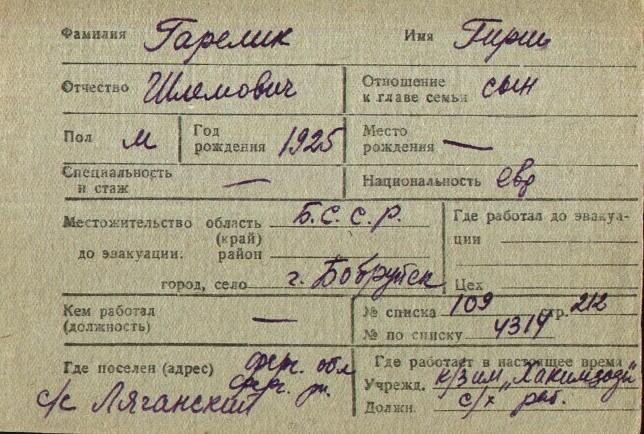 Фамилия Гарелик Имя Гирш
Отчество Шлемович Отношение к главе семьи сын
Пол М Год рождения 1925 Место рождения —
Специальность и стаж — Национальность евр
Местожительство область Б.С.С.Р. Где работал до эвакуа-
(край) ции
до эвакуации: район
город, село г. Бобруйск Цех
Кем работал № списка 109 стр. 212
(должность) — № по списку 4314
Где поселен (адрес) фер. обл Где работает в настоящее время
фер. рн. Учрежд. к/з им „Хакимзоди"
с/с Ляганский Должн. с/х раб.